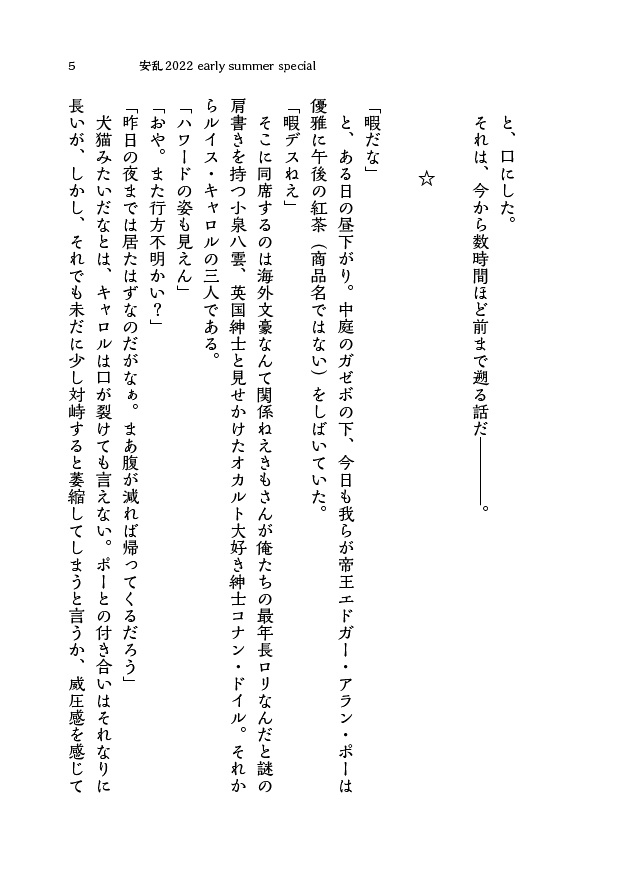 5
安乱 2022 early summer special
と、口にした。
それは、今から数時間ほど前まで遡る話だ――――。
☆
「暇だな」
と、ある日の昼下がり。中庭のガゼボの下、今日も我らが帝王エドガー・アラン・ポーは
優雅に午後の紅茶（商品名ではない）をしばいていた。
「暇デスねえ」
そこに同席するのは海外文豪なんて関係ねえきもさんが俺たちの最年長ロリなんだと謎の
肩書きを持つ小泉八雲、英国紳士と見せかけたオカルト大好き紳士コナン・ドイル。それか
らルイス・キャロルの三人である。
「ハワードの姿も見えん」
「おや。また行方不明かい？」
「昨日の夜までは居たはずなのだがなぁ。まあ腹が減れば帰ってくるだろう」
犬猫みたいだなとは、キャロルは口が裂けても言えない。ポーとの付き合いはそれなりに
長いが、しかし、それでも未だに少し対峙すると萎縮してしまうと言うか、威圧感を感じて